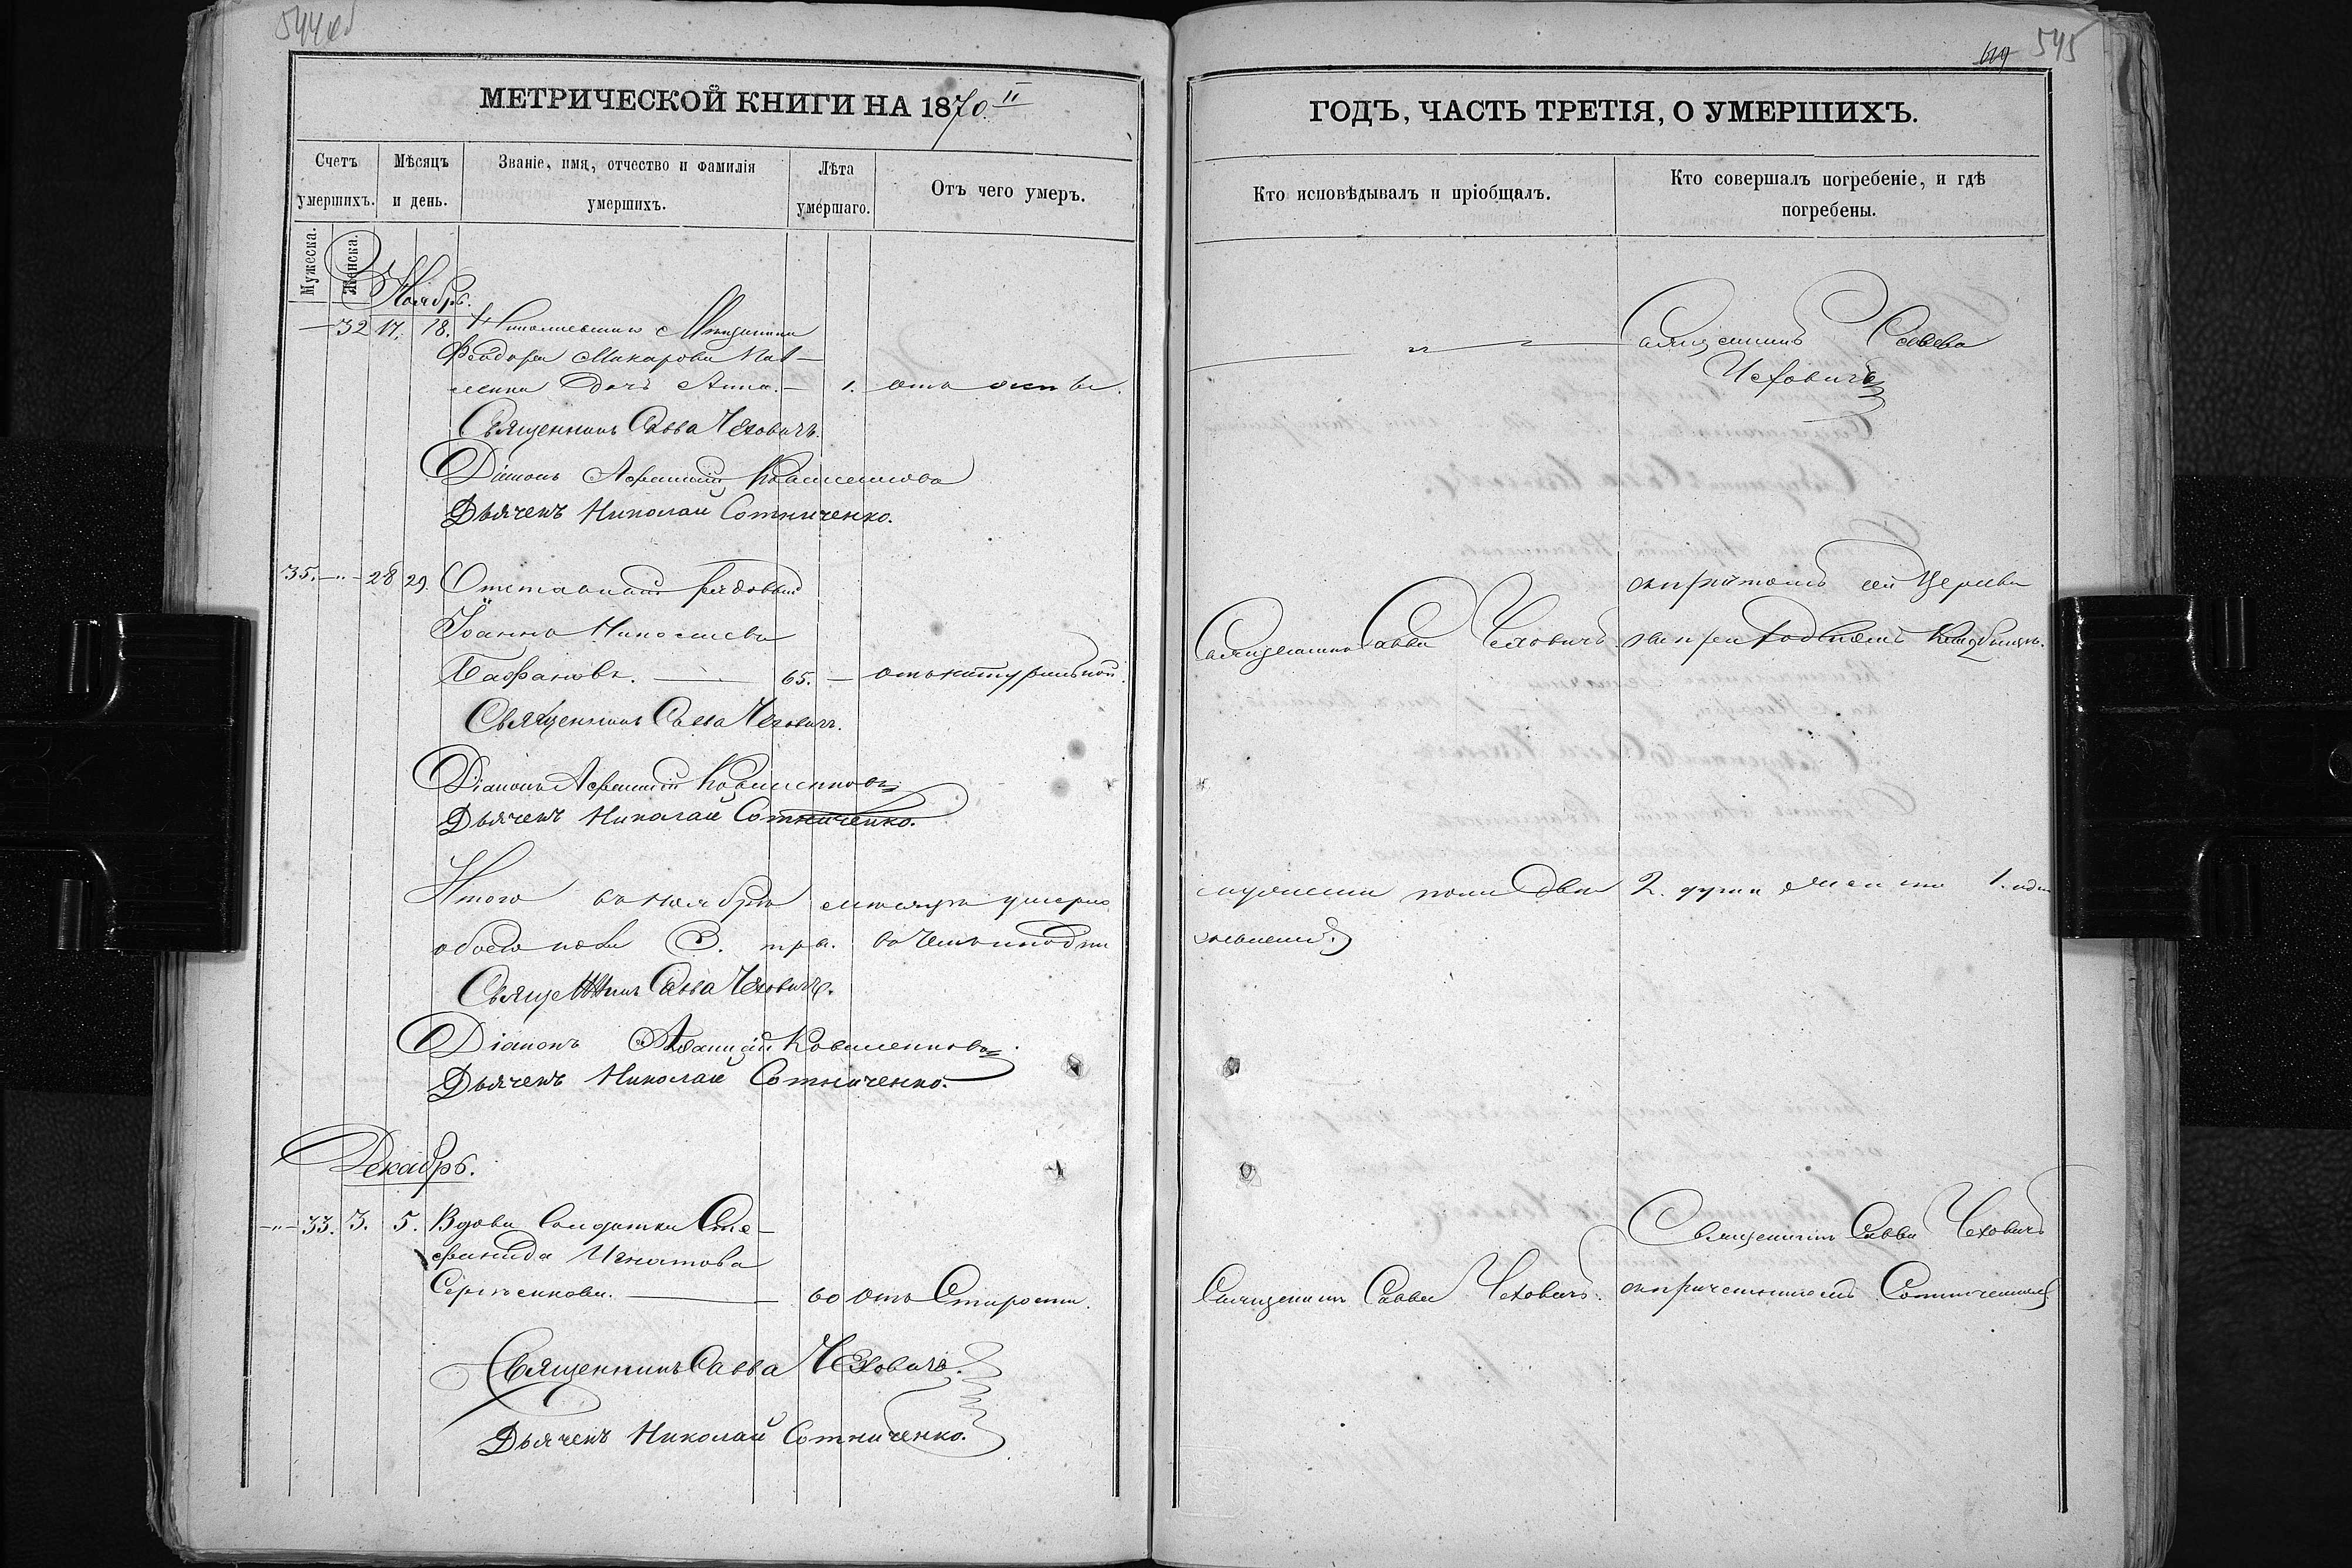 544об
МЕТРИЧЕСКОЙ КНИГИ НА 1870 II
Счетъ умершихъ.
Мѣсяцъ и день.
Званіе, имя, отчество и фамилія умершихъ.
Лѣта умершаго.
Отъ чего умеръ.
Мужеска.
Женска.
Ноябрь.
32 17. 18.
Феодора Макарова
дочь Анна. — 1. отъ оспы.
Священникъ Савва Чеховичъ.
Діаконъ Афанасій Коваленковъ
Дьячекъ Николай Сотниченко.
35. — " — 28 29. Отставный рядовый
Іоаннъ Николаевъ
65. — отъ натуральной.
Священникъ Савва Чеховичъ.
Діаконъ Афанасій Коваленковъ
Дьячекъ Николай Сотниченко.
Итого въ ноябрѣ мѣсяцѣ умерло
обоего пола 3. три. въ томъ числѣ
Священникъ Савва Чеховичъ.
Діаконъ Афанасій Коваленковъ
Дьячекъ Николай Сотниченко.
Декабрь.
— " — 33. 3. 5. Вдова Солдатка Сте-
фанида Игнатова
Сергѣенкова. — 60 отъ Старости.
Священникъ Савва Чеховичъ.
Дьячекъ Николай Сотниченко.
545
ГОДЪ, ЧАСТЬ ТРЕТІЯ, О УМЕРШИХЪ.
Кто исповѣдывалъ и пріобщалъ.
Кто совершалъ погребеніе, и гдѣ погребены.
— " — Священникъ Савва
Чеховичъ
съ причтомъ сей Церкви
Священникъ Савва Чеховичъ. на приходскомъ кладбищѣ.
мужеска пола два 2. души женска 1. одна
Священникъ Савва Чеховичъ
Священникъ Савва Чеховичъ. съ причетникомъ Сотниченкомъ